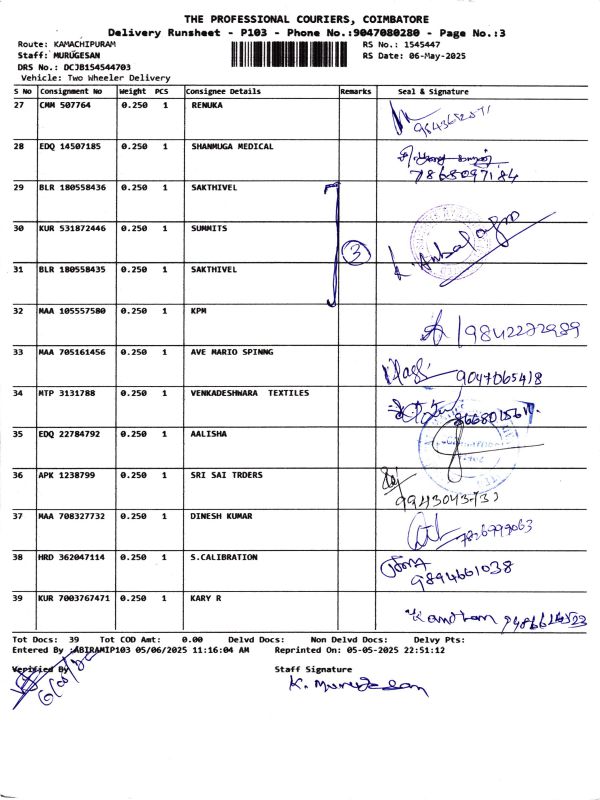 THE PROFESSIONAL COURIERS, COIMBATORE
Delivery Runsheet - P103 - Phone No.:9047080280 - Page No.:3
Route: KAMACHIPURAM RS No.: 1545447
Staff: MURUGESAN RS Date: 06-May-2025
DRS No.: DCJB154544703
Vehicle: Two Wheeler Delivery
S No Consignment No Weight PCS Consignee Details Remarks Seal & Signature
27 CMM 507764 0.250 1 RENUKA
28 EDQ 14507185 0.250 1 SHANMUGA MEDICAL
7868097184
29 BLR 180558436 0.250 1 SAKTHIVEL
30 KUR 531872446 0.250 1 SUMMITS
3 K. Anbalagan
31 BLR 180558435 0.250 1 SAKTHIVEL
32 MAA 105557580 0.250 1 KPM
9842272989
33 MAA 705161456 0.250 1 AVE MARIO SPINNG
9047065418
34 MTP 3131788 0.250 1 VENKADESHWARA TEXTILES
35 EDQ 22784792 0.250 1 AALISHA
36 APK 1238799 0.250 1 SRI SAI TRDERS
37 MAA 708327732 0.250 1 DINESH KUMAR
38 HRD 362047114 0.250 1 S.CALIBRATION
9894661038
39 KUR 7003767471 0.250 1 KARY R
Tot Docs: 39 Tot COD Amt: 0.00 Delvd Docs: Non Delvd Docs: Delvy Pts:
Entered By :ABIRAMIP103 05/06/2025 11:16:04 AM Reprinted On: 05-05-2025 22:51:12
Verified By Staff Signature
K. Murugesan